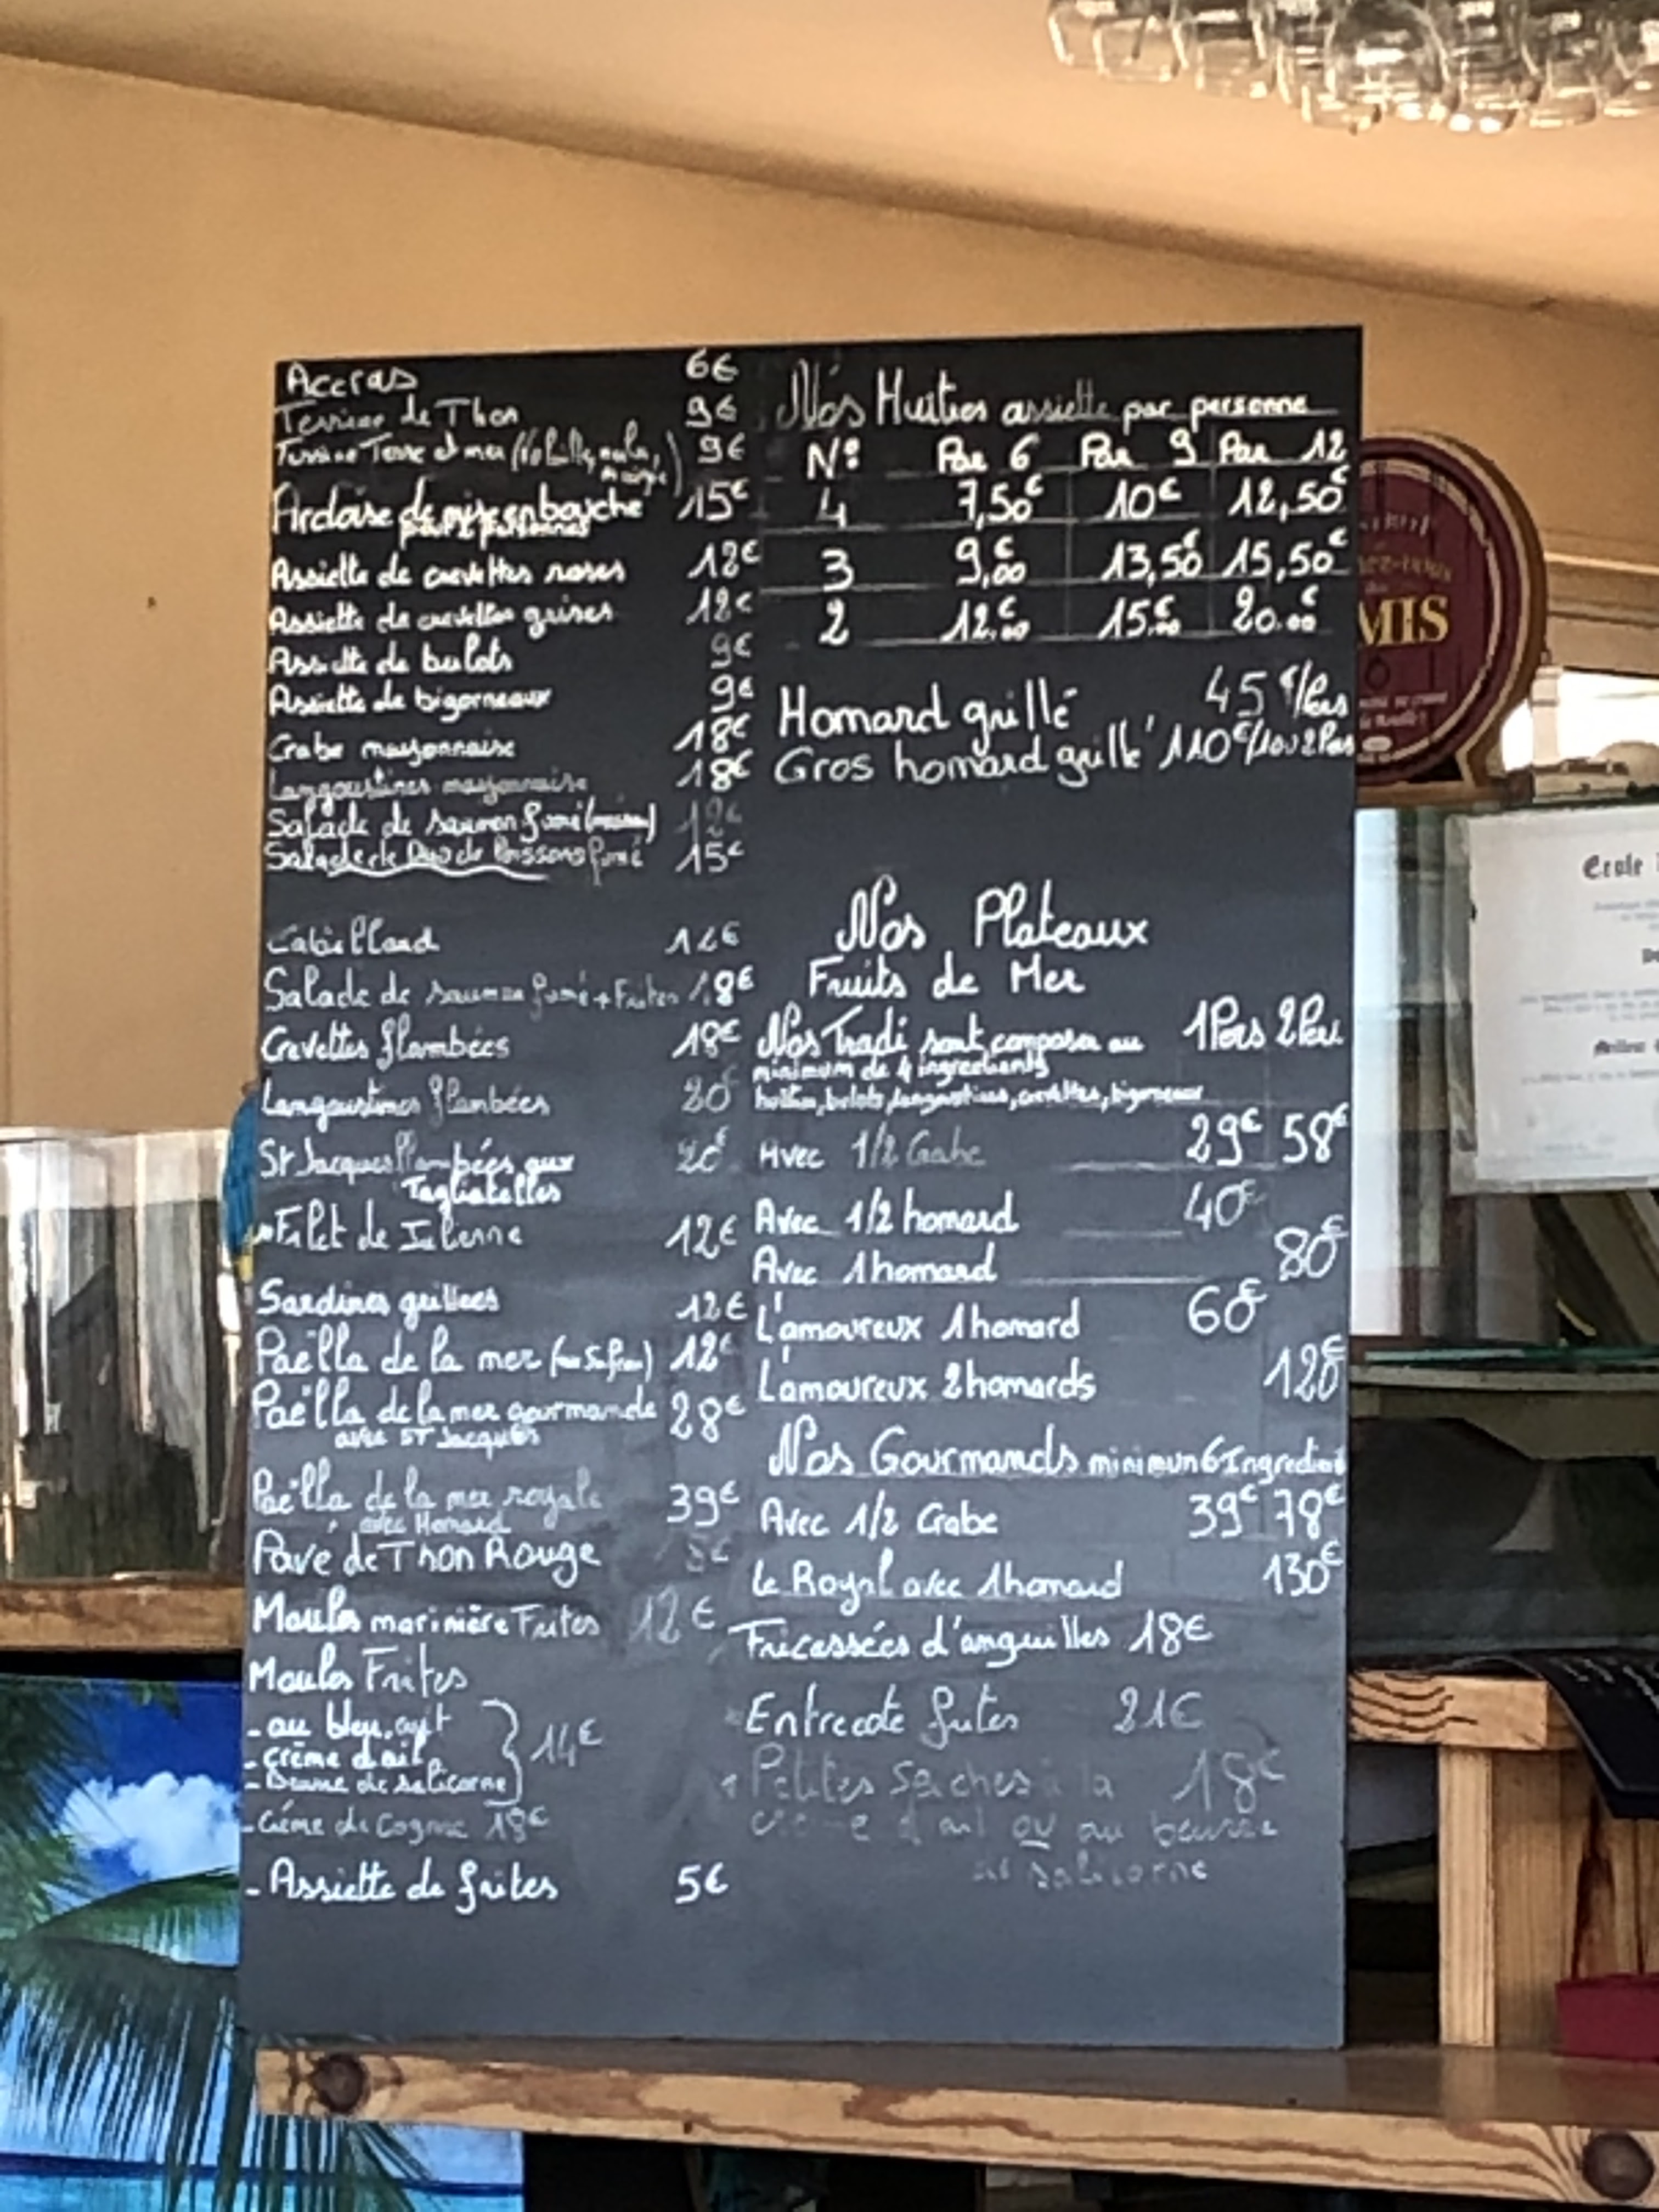 Accras 6€
Terrine de Thon 9€
Terrine Terre et mer 9€
Ardoise de mise en bouche 15€
pour 2 personnes
Assiette de crevettes roses 12€
Assiette de crevettes grises 12€
Assiette de bulots 9€
Assiette de bigorneaux 9€
Crabe mayonnaise 18€
Langoustines mayonnaise 18€
Salade de saumon fumé 12€
Salade de Duo de Poissons fumé 15€
Cabillaud
Salade de saumon fumé + Frites 18€
Crevettes flambées 18€
Langoustines flambées 20€
St Jacques flambées aux 20€
Tagliatelles
Filet de Julienne 12€
Sardines grillées 12€
Paëlla de la mer (au Safran) 12€
Paëlla de la mer gourmande 28€
avec ST Jacques
Paëlla de la mer royale 39€
avec Homard
Pavé de Thon Rouge
Moules marinière Frites 12€
Moules Frites
- au bleu, 14€
- crème d'ail
- Beurre de salicorne
- Crème de Cognac 18€
- Assiette de frites 5€
Nos Huitres assiette par personne
N° Par 6 Par 9 Par 12
4 7,50€ 10€ 12,50€
3 9,00€ 13,50€ 15,50€
2 12.00€ 15.00€ 20.00€
Homard grillé 45€/Pers
Gros homard grillé 110€/1ou2Pers
Nos Plateaux
Fruits de Mer
Nos Tradi sont composer au 1Pers 2Pers
minimum de 4 ingredients
huitres, bulots, langoustines, crevettes, bigorneaux
Avec 1/2 Crabe 29€ 58€
Avec 1/2 homard 40€
Avec 1homard 80€
L'amoureux 1homard 60€
L'amoureux 2homards 120€
Nos Gourmands minimun 6 Ingredient
Avec 1/2 Crabe 39€ 78€
Le Royal avec 1homard 130€
Fricassées d'anguilles 18€
Entrecote frites 21€
Petites Seches à la 18€
crème d'ail ou au beurre
de salicorne
MIS
Ecole